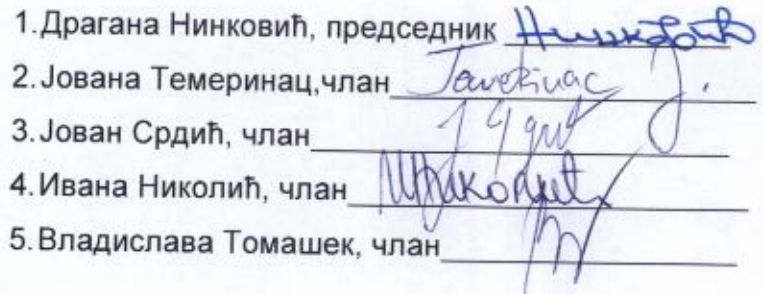 1.Драгана Нинковић, председник Нинковић
2.Јована Темеринац,члан Temerinac J.
3.Јован Срдић, члан
4.Ивана Николић, члан
5.Владислава Томашек, члан